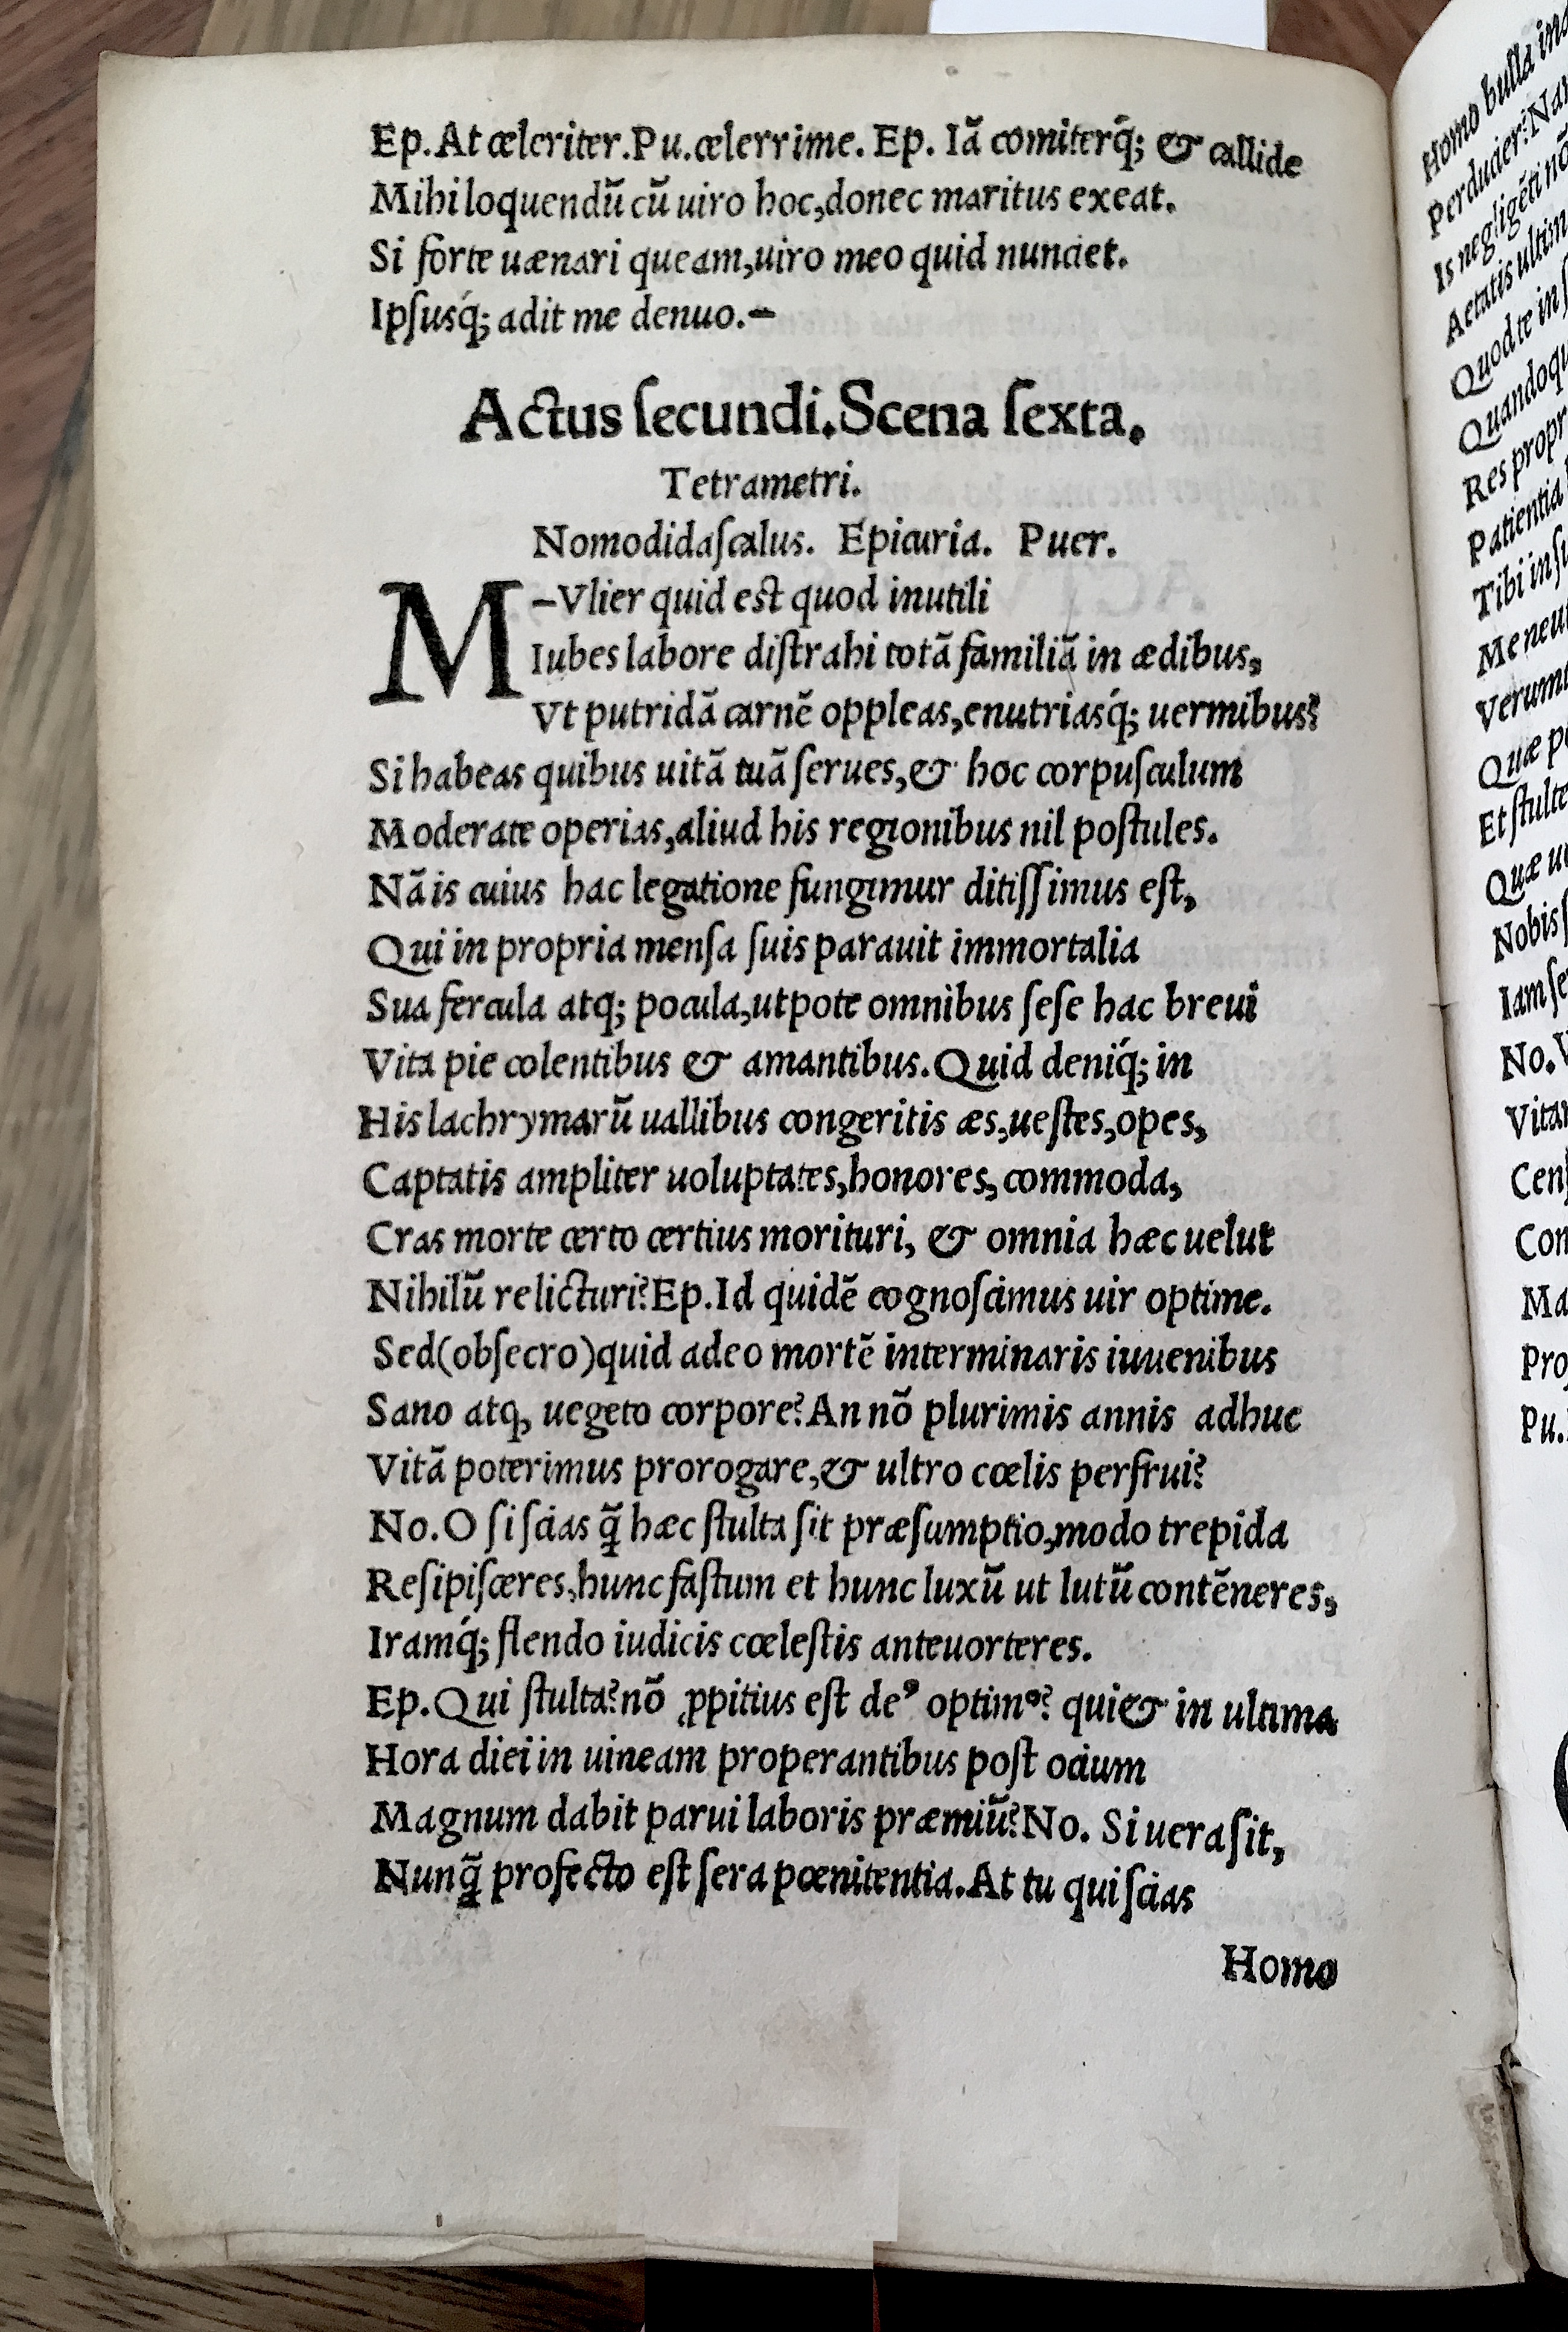 Ep.At cæleriter.Pu.cælerrime. Ep. Iã comiterq́; & callide
Mihi loquendũ cũ uiro hoc,donec maritus exeat.
Si forte uænari queam,uiro meo quid nunciet.
Ipſusq́; adit me denuo.—
Actus ſecundi.Scena ſexta.
Tetrametri.
Nomodidaſcalus. Epicuria. Puer.
M—Vlier quid est quod inutili
Iubes labore diſtrahi totã familiã in ædibus,
Vt putridã carnẽ oppleas,enutriasq́; uermibus?
Si habeas quibus uitã tuã ſerues,& hoc corpuſculum
Moderate operias,aliud his regionibus nil poſtules.
Nã is cuius hac legatione fungimur ditiſſimus eſt,
Qui in propria menſa ſuis parauit immortalia
Sua fercula atq; pocula,utpote omnibus ſeſe hac breui
Vita pie colentibus & amantibus.Quid deniq́; in
His lachrymarũ uallibus congeritis æs,ueſtes,opes,
Captatis ampliter uoluptates,honores,commoda,
Cras morte certo certius morituri, & omnia hæc uelut
Nihilũ relicturi?Ep.Id quidẽ cognoſcimus uir optime.
Sed(obſecro)quid adeo mortẽ interminaris iuuenibus
Sano atq, uegeto corpore?An nõ plurimis annis adhuc
Vitã poterimus prorogare,& ultro cœlis perfrui?
No.O ſi ſcias q̃ hæc ſtulta ſit præſumptio,modo trepida
Reſipiſceres,hunc faſtum et hunc luxũ ut lutũ contẽneres,
Iramq́; flendo iudicis cœleſtis anteuorteres.
Ep.Qui ſtulta?nõ ꝓpitius eſt deꝰ optimꝰ? qui & in ultima
Hora diei in uineam properantibus poſt ocium
Magnum dabit parui laboris præmiũ?No. Si uera ſit,
Nunq̃ profecto eſt ſera pœnitentia.At tu qui ſcias
Homo
Homo bulla
perducier?Nam
Is negligẽti nõ
Aetatis ultim
Quod te in
Quandoqu
Res propr
Patientia
Tibi in ſu
Me neu
Verum
Quæ p
Et ſtulte
Quæ u
Nobis ſ
Iam ſe
No.V
Vitam
Cenſ
Con
Ma
Pro
Pu.